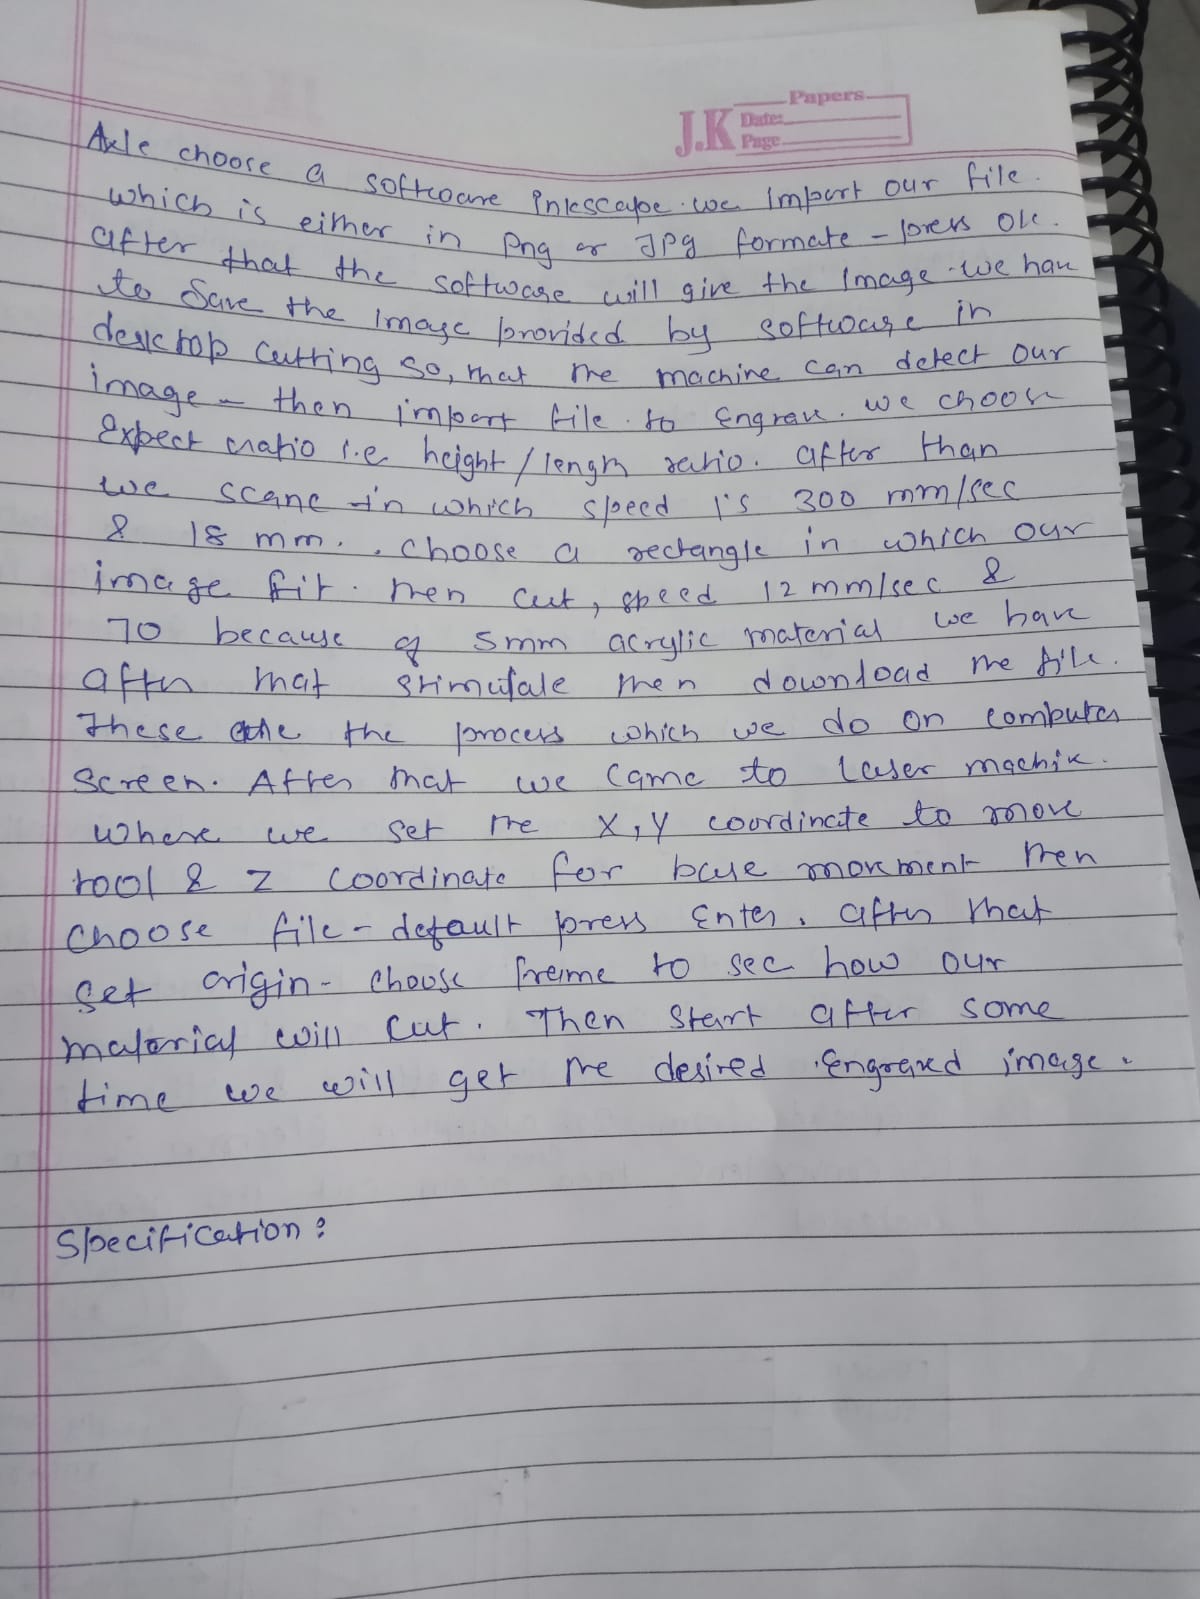 Papers
J.K Date:
Page
Axle choose a software Inkscape. we Import our file.
which is either in Png or JPg formate - press Ok.
after that the software will give the Image. we have
to Save the Image provided by software in
desktop cutting so, that the machine can detect our
image - then import file. to Engrave. we choose
Expect ratio i.e height/length ratio. after than
we scane in which speed is 300 mm/sec
& 18 mm.. choose a rectangle in which our
image fit. then cut, speed 12 mm/sec &
70 because of 5mm acrylic material we have
after that stimulale then download the file.
These the the process which we do on computer
screen. After that we came to laser machine.
where we set the X,Y coordinate to move
tool & Z coordinate for base movement then
choose file - default press Enter. after that
set origin - choose freme to see how our
material will cut. Then start after some
time we will get the desired Engraved image.
Specification: